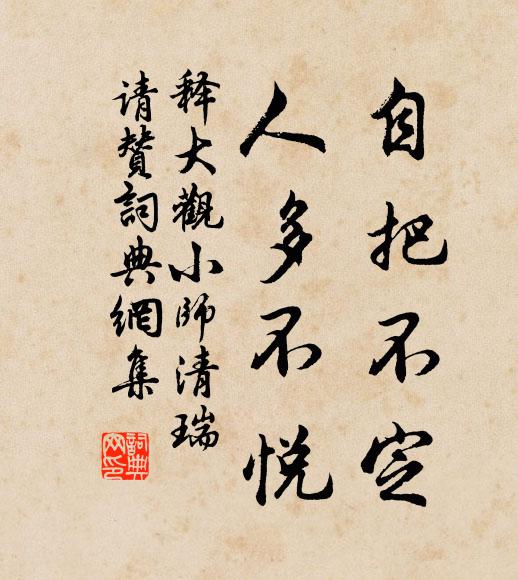 自把不定
人多不悦
释大觀小師清瑞
请赞詞典網集
詞典
网印